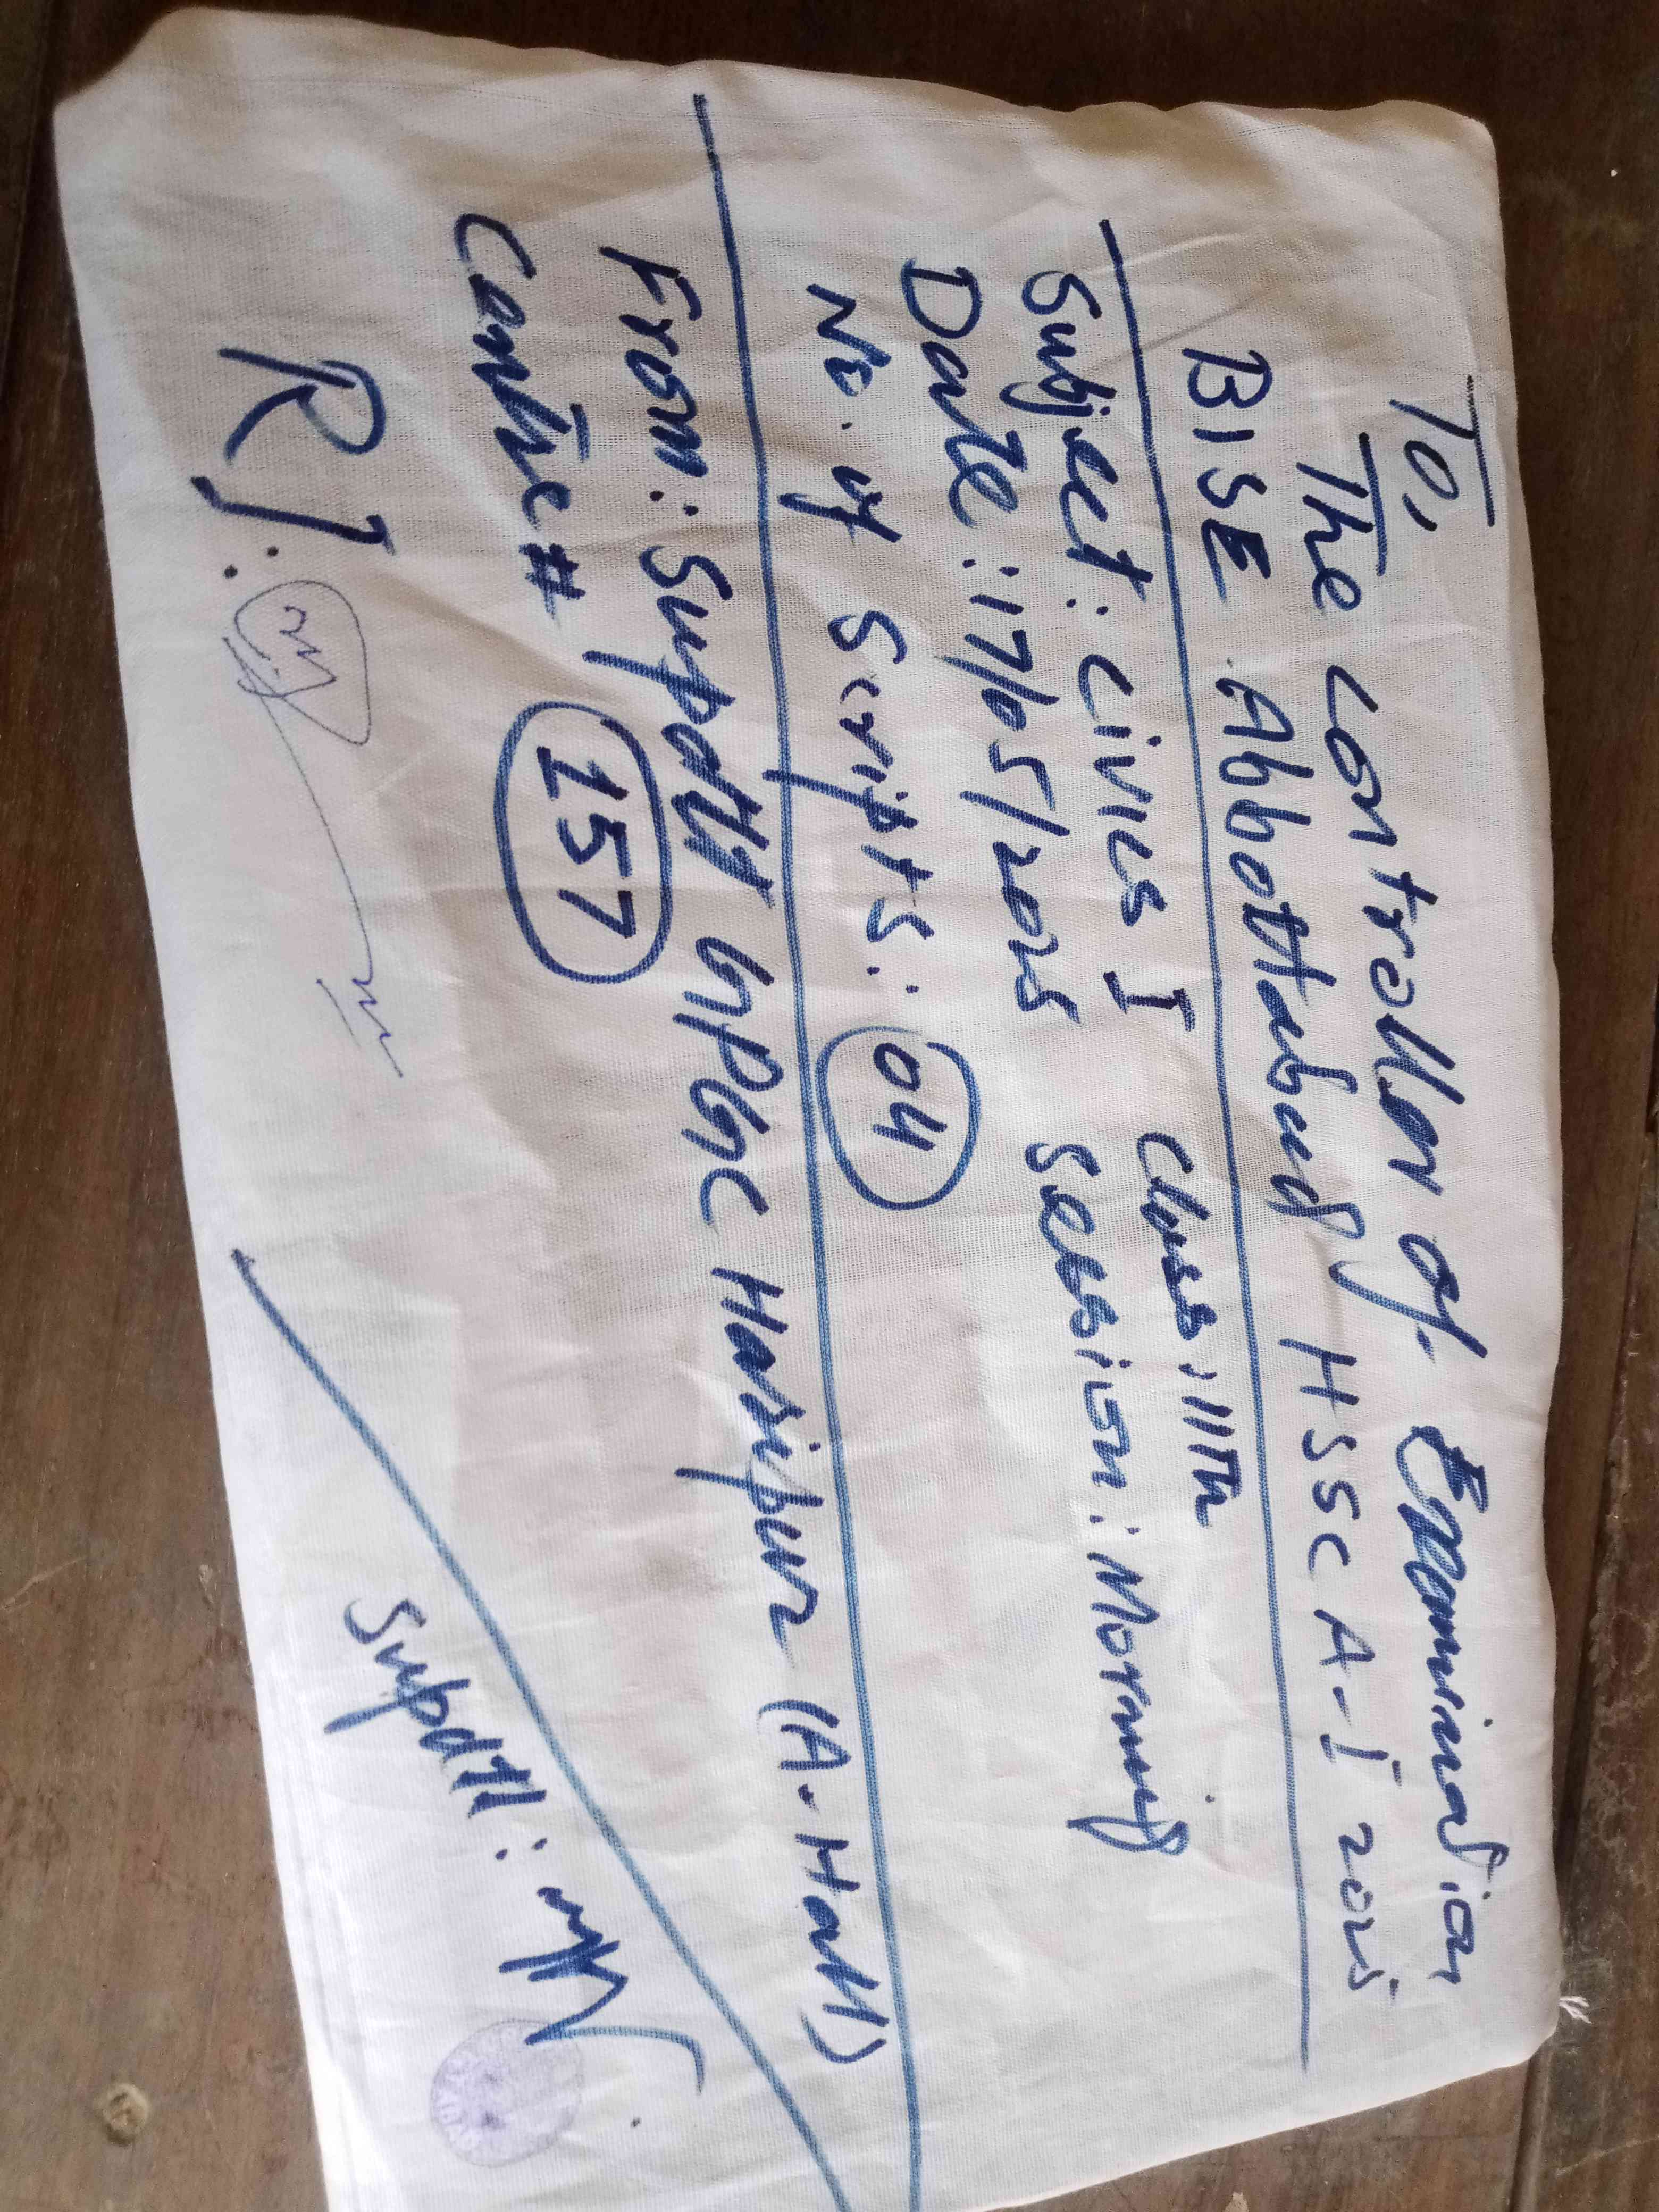 To,
The Controller of Examination
BISE Abbottabad HSSC A-I 2025
Subject: Civics I Class: 11th
Date: 17/05/2025 Session: Morning
No. of Scripts: 04
From: Supdtt GPGC Haripur (A. Hall)
Centre # 157
RI:
Supdtt: